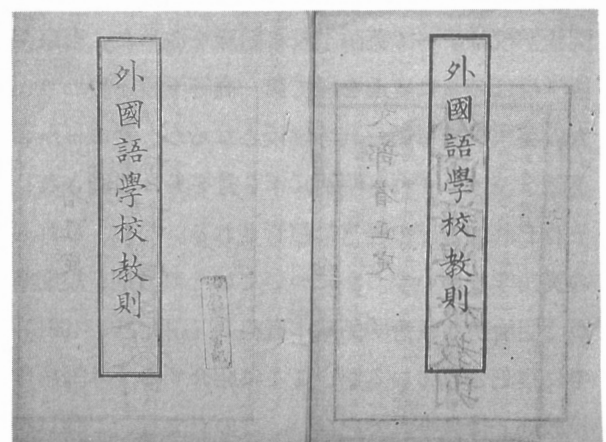 外國語學校教則
外國語學校教則